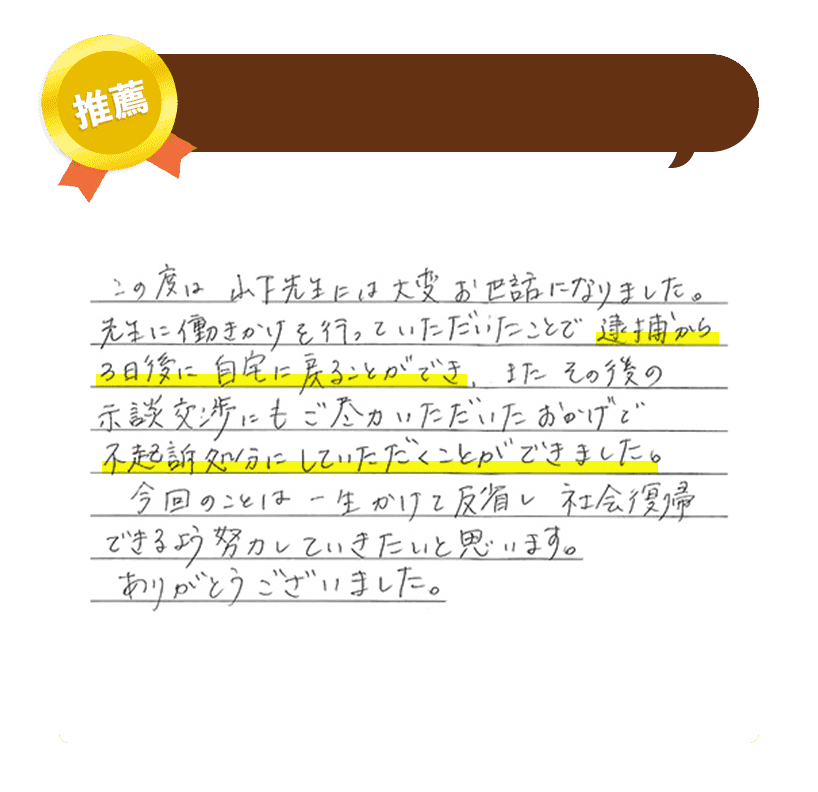 推薦
この度は 山下先生には大変お世話になりました。
先生に働きかけを行っていただいたことで 逮捕から
3日後に 自宅に戻ることができ、また その後の
示談交渉にもご尽力いただいたおかげで
不起訴処分にしていただくことができました。
今回のことは 一生かけて反省し 社会復帰
できるよう努力していきたいと思います。
ありがとうございました。